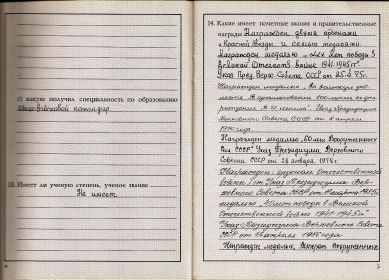 г) какую получил специальность по образованию
Общевойсковой командир.
13. Имеет ли ученую степень, ученое звание
Не имеет
14. Какие имеет почетные звания и правительственные
награды Награжден двумя орденами
"Красной Звезды" и семью медалями.
Награжден медалью "XXX лет победы в
Великой Отечеств. войне 1941-1945гг"
Указ През. Верх. Совета СССР от 25.4.75г.
Награжден медалью "За воинскую доб-
лесть В ознаменование 100-летия со дня
рождения В. И. Ленина". Указ Президиума
Верховного Совета СССР от
1970 года
Награжден медалью "60 лет Вооруженных
Сил СССР" Указ Президиума Верховного
Совета СССР от 28 января 1978г.
Награжден: орденом Отечественной
Войны I ст Указ Президиума Вер-
ховного Совета СССР от 11 марта 1985г
медалью "40 лет победы в Великой
Отечественной войне 1941-1945гг"
Указ Президиума Верховного Совета
СССР от 1985 года
Награжден медалью, Ветеран Вооруженных